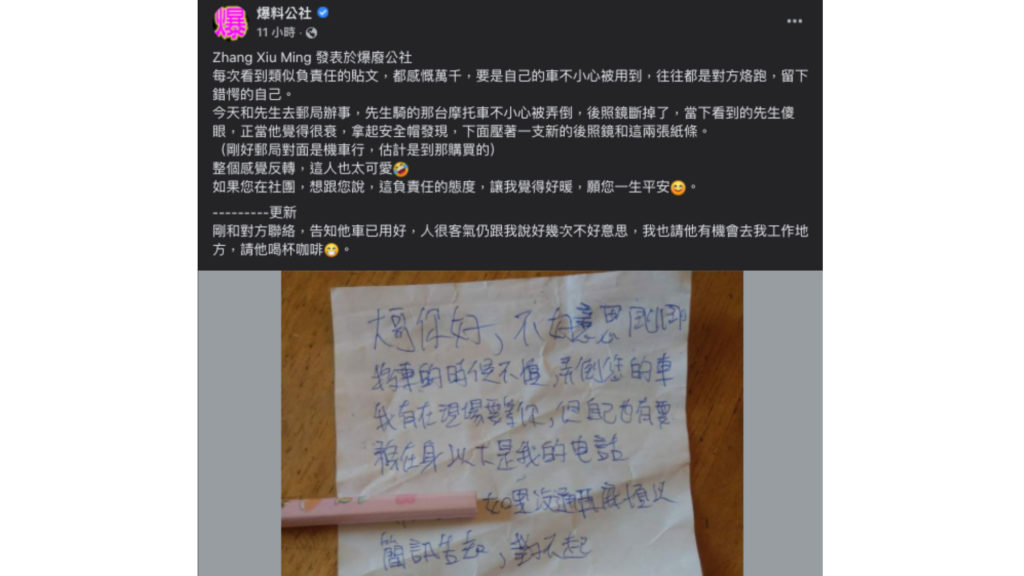 爆
爆料公社
11 小時 ·
Zhang Xiu Ming 發表於爆廢公社
每次看到類似負責任的貼文，都感慨萬千，要是自己的車不小心被用到，往往都是對方烙跑，留下
錯愕的自己。
今天和先生去郵局辦事，先生騎的那台摩托車不小心被弄倒，後照鏡斷掉了，當下看到的先生傻
眼，正當他覺得很衰，拿起安全帽發現，下面壓著一支新的後照鏡和這兩張紙條。
（剛好郵局對面是機車行，估計是到那購買的）
整個感覺反轉，這人也太可愛🤣
如果您在社團，想跟您說，這負責任的態度，讓我覺得好暖，願您一生平安😊。
---------更新
剛和對方聯絡，告知他車已用好，人很客氣仍跟我說好幾次不好意思，我也請他有機會去我工作地
方，請他喝杯咖啡😁。
大哥你好，不好意思剛剛
移車的時候不慎弄倒您的車
我有在現場等你，但自己也有要
務在身以下是我的电話
如果沒通
簡訊告知，對不起